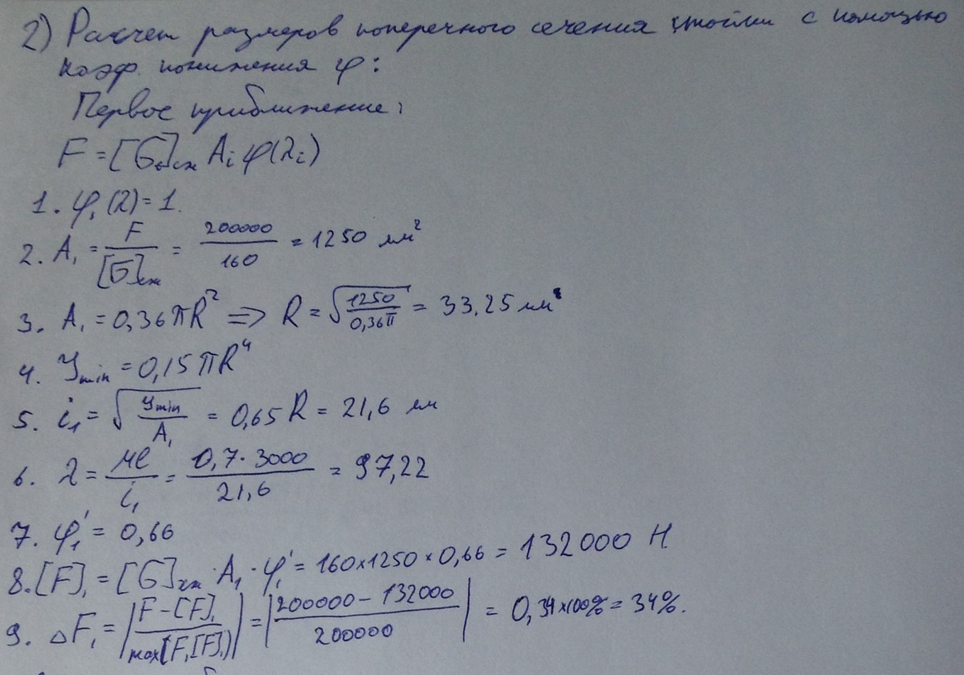 2) Расчет размеров поперечного сечения стойки с помощью
коэф. понижения φ:
Первое приближение:
F = [σ]сж Ai φ(λi)
1. φ1(λ) = 1.
2. A1 = F/[σ]сж = 200000/160 = 1250 мм²
3. A1 = 0,36πR² => R = √(1250/0,36π) = 33,25 мм
4. Jmin = 0,15πR⁴
5. i1 = √(Jmin/A1) = 0,65 R = 21,6 мм
6. λ = μl/i1 = 0,7·3000/21,6 = 97,22
7. φ1' = 0,66
8. [F]1 = [σ]сж · A1 · φ1' = 160×1250×0,66 = 132000 Н
9. ΔF1 = |F-[F]1/max(F,[F]1)| = |200000-132000/200000| = 0,34×100% = 34%.